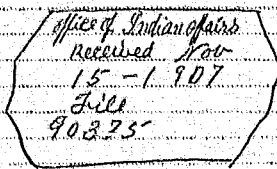 office of Indian affairs
Received Nov
15-1907
File
90375